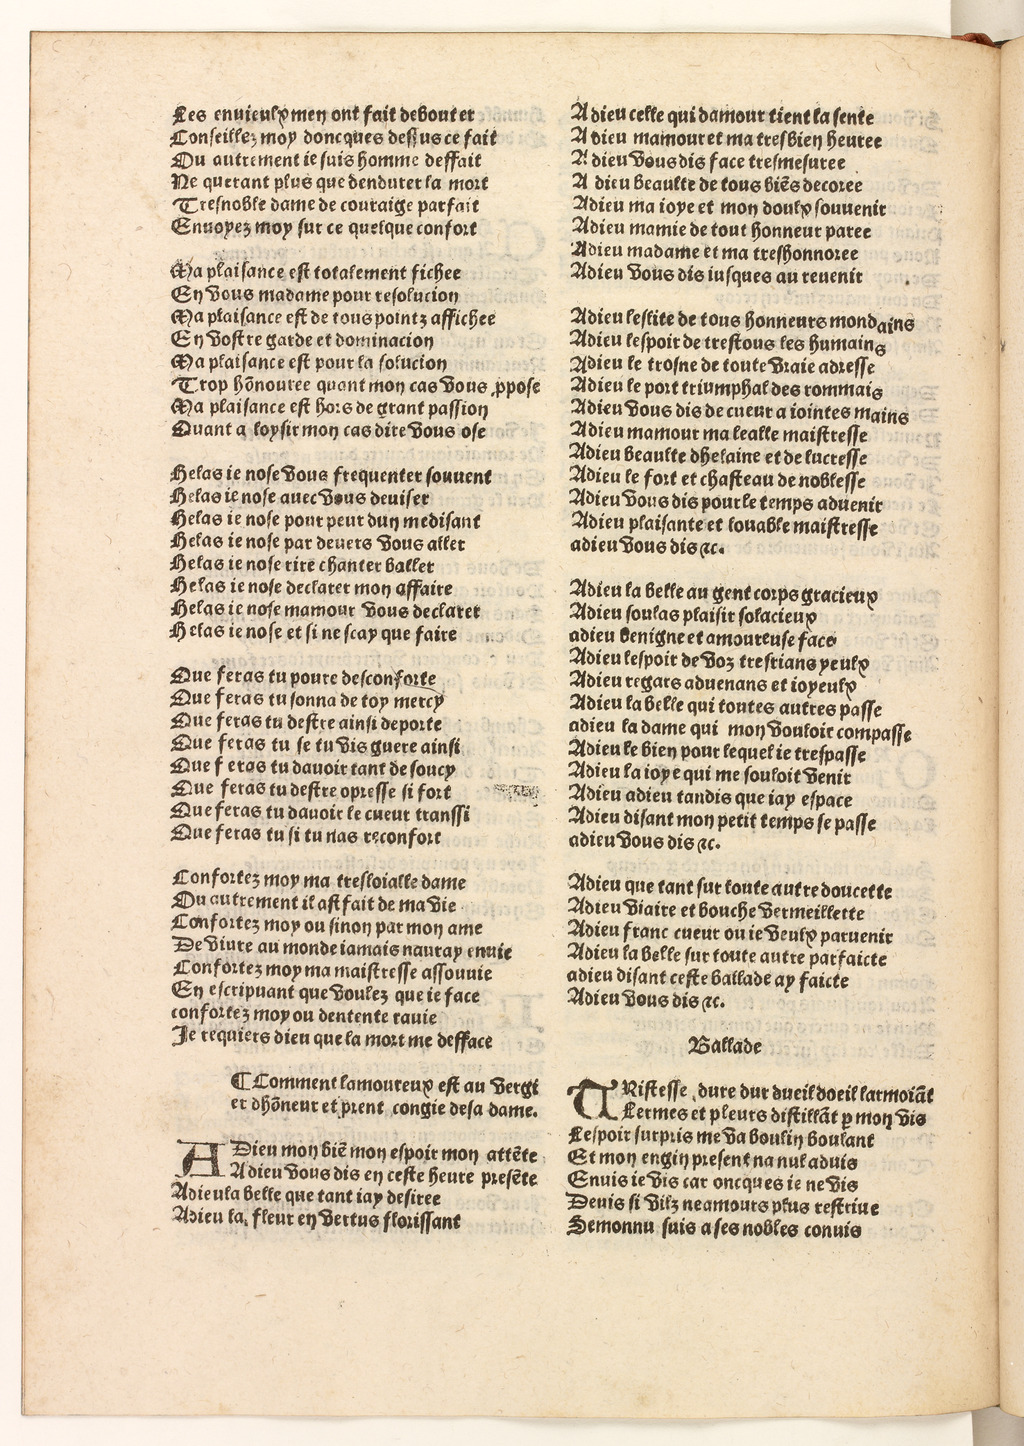 Les enuieulx men ont fait debouter
Conseillez moy doncques dessus ce fait
Ou autrement ie suis homme deffait
Ne querant plus que dendurer la mort
Tresnoble dame de couraige parfait
Enuoyez moy sur ce quelque confort
Ma plaisance est totalement fichee
En vous madame pour resolucion
Ma plaisance est de tous pointz affichee
En vostre garde et dominacion
Ma plaisance est pour la solucion
Trop hõnouree quant mon cas vous ꝓpose
Ma plaisance est hors de grant passion
Quant a loysir mon cas dire vous ose
Helas ie nose vous frequenter souuent
Helas ie nose auec vous deuiser
Helas ie nose pour peur dun mesdisant
Helas ie nose par deuers vous aller
Helas ie nose rire chanter baller
Helas ie nose declarer mon affaire
Helas ie nose mamour vous declarer
Helas ie nose et si ne scay que faire
Que feras tu poure desconforte
Que feras tu sonna de toy mercy
Que feras tu destre ainsi deporte
Que feras tu se tu vis guere ainsi
Que feras tu dauoir tant de soucy
Que feras tu destre opresse si fort
Que feras tu dauoir le cueur transsi
Que feras tu si tu nas reconfort
Confortez moy ma tresloialle dame
Ou autrement il ast fait de ma vie
Confortez moy ou sinon par mon ame
De viure au monde iamais nauray enuie
Confortez moy ma maistresse assouuie
En escripuant que voulez que ie face
confortez moy ou dentente rauie
Ie requiers dieu que la mort me defface
¶ Comment lamoureux est au vergi
er dhõneur et prent congie de sa dame.
ADieu mon biẽ mon espoir mon attẽte
Adieu vous dis en ceste heure presẽte
Adieu la belle que tant iay desiree
Adieu la fleur en vertus florissant
Adieu celle qui damour tient la sente
Adieu mamour et ma tresbien heuree
Adieu vous dis face tresmesuree
Adieu beaulte de tous biẽs decoree
Adieu ma ioye et mon doulx souuenir
Adieu mamie de tout honneur paree
Adieu madame et ma treshonnoree
Adieu vous dis iusques au reuenir
Adieu leslite de tous honneurs mondains
Adieu lespoir de trestous les humains
Adieu le trosne de toute vraie adresse
Adieu le port triumphal des rommais
Adieu vous dis de cueur a iointes mains
Adieu mamour ma lealle maistresse
Adieu beaulte dhelaine et de lucresse
Adieu le fort et chasteau de noblesse
Adieu vous dis pour le temps aduenir
Adieu plaisante et louable maistresse
adieu vous dis ⁊c.
Adieu la belle au gent corps gracieux
Adieu soulas plaisir solacieux
adieu benigne et amoureuse face
Adieu lespoir de voz tresrians yeulx
Adieu regars aduenans et ioyeulx
Adieu la belle qui toutes autres passe
adieu la dame qui mon vouloir compasse
Adieu le bien pour lequel ie trespasse
Adieu la ioye qui me souloit venir
Adieu adieu tandis que iay espace
Adieu disant mon petit temps se passe
adieu vous dis ⁊c.
Adieu que tant sur toute autre doucette
Adieu viaire et bouche vermeillette
Adieu franc cueur ou ie veulx paruenir
Adieu la belle sur toute autre parfaicte
adieu disant ceste ballade ay faicte
Adieu vous dis ⁊c.
Ballade
TRistesse dure dur dueil doeil larmoiãt
Lermes et pleurs distillãt ꝑ mon vis
Lespoir surpris me va boulin boulant
Et mon engin present na nul aduis
Enuis ie vis car oncques ie ne vis
Deuis si vilz ne amours plus restriue
Semonnu suis a ses nobles conuis